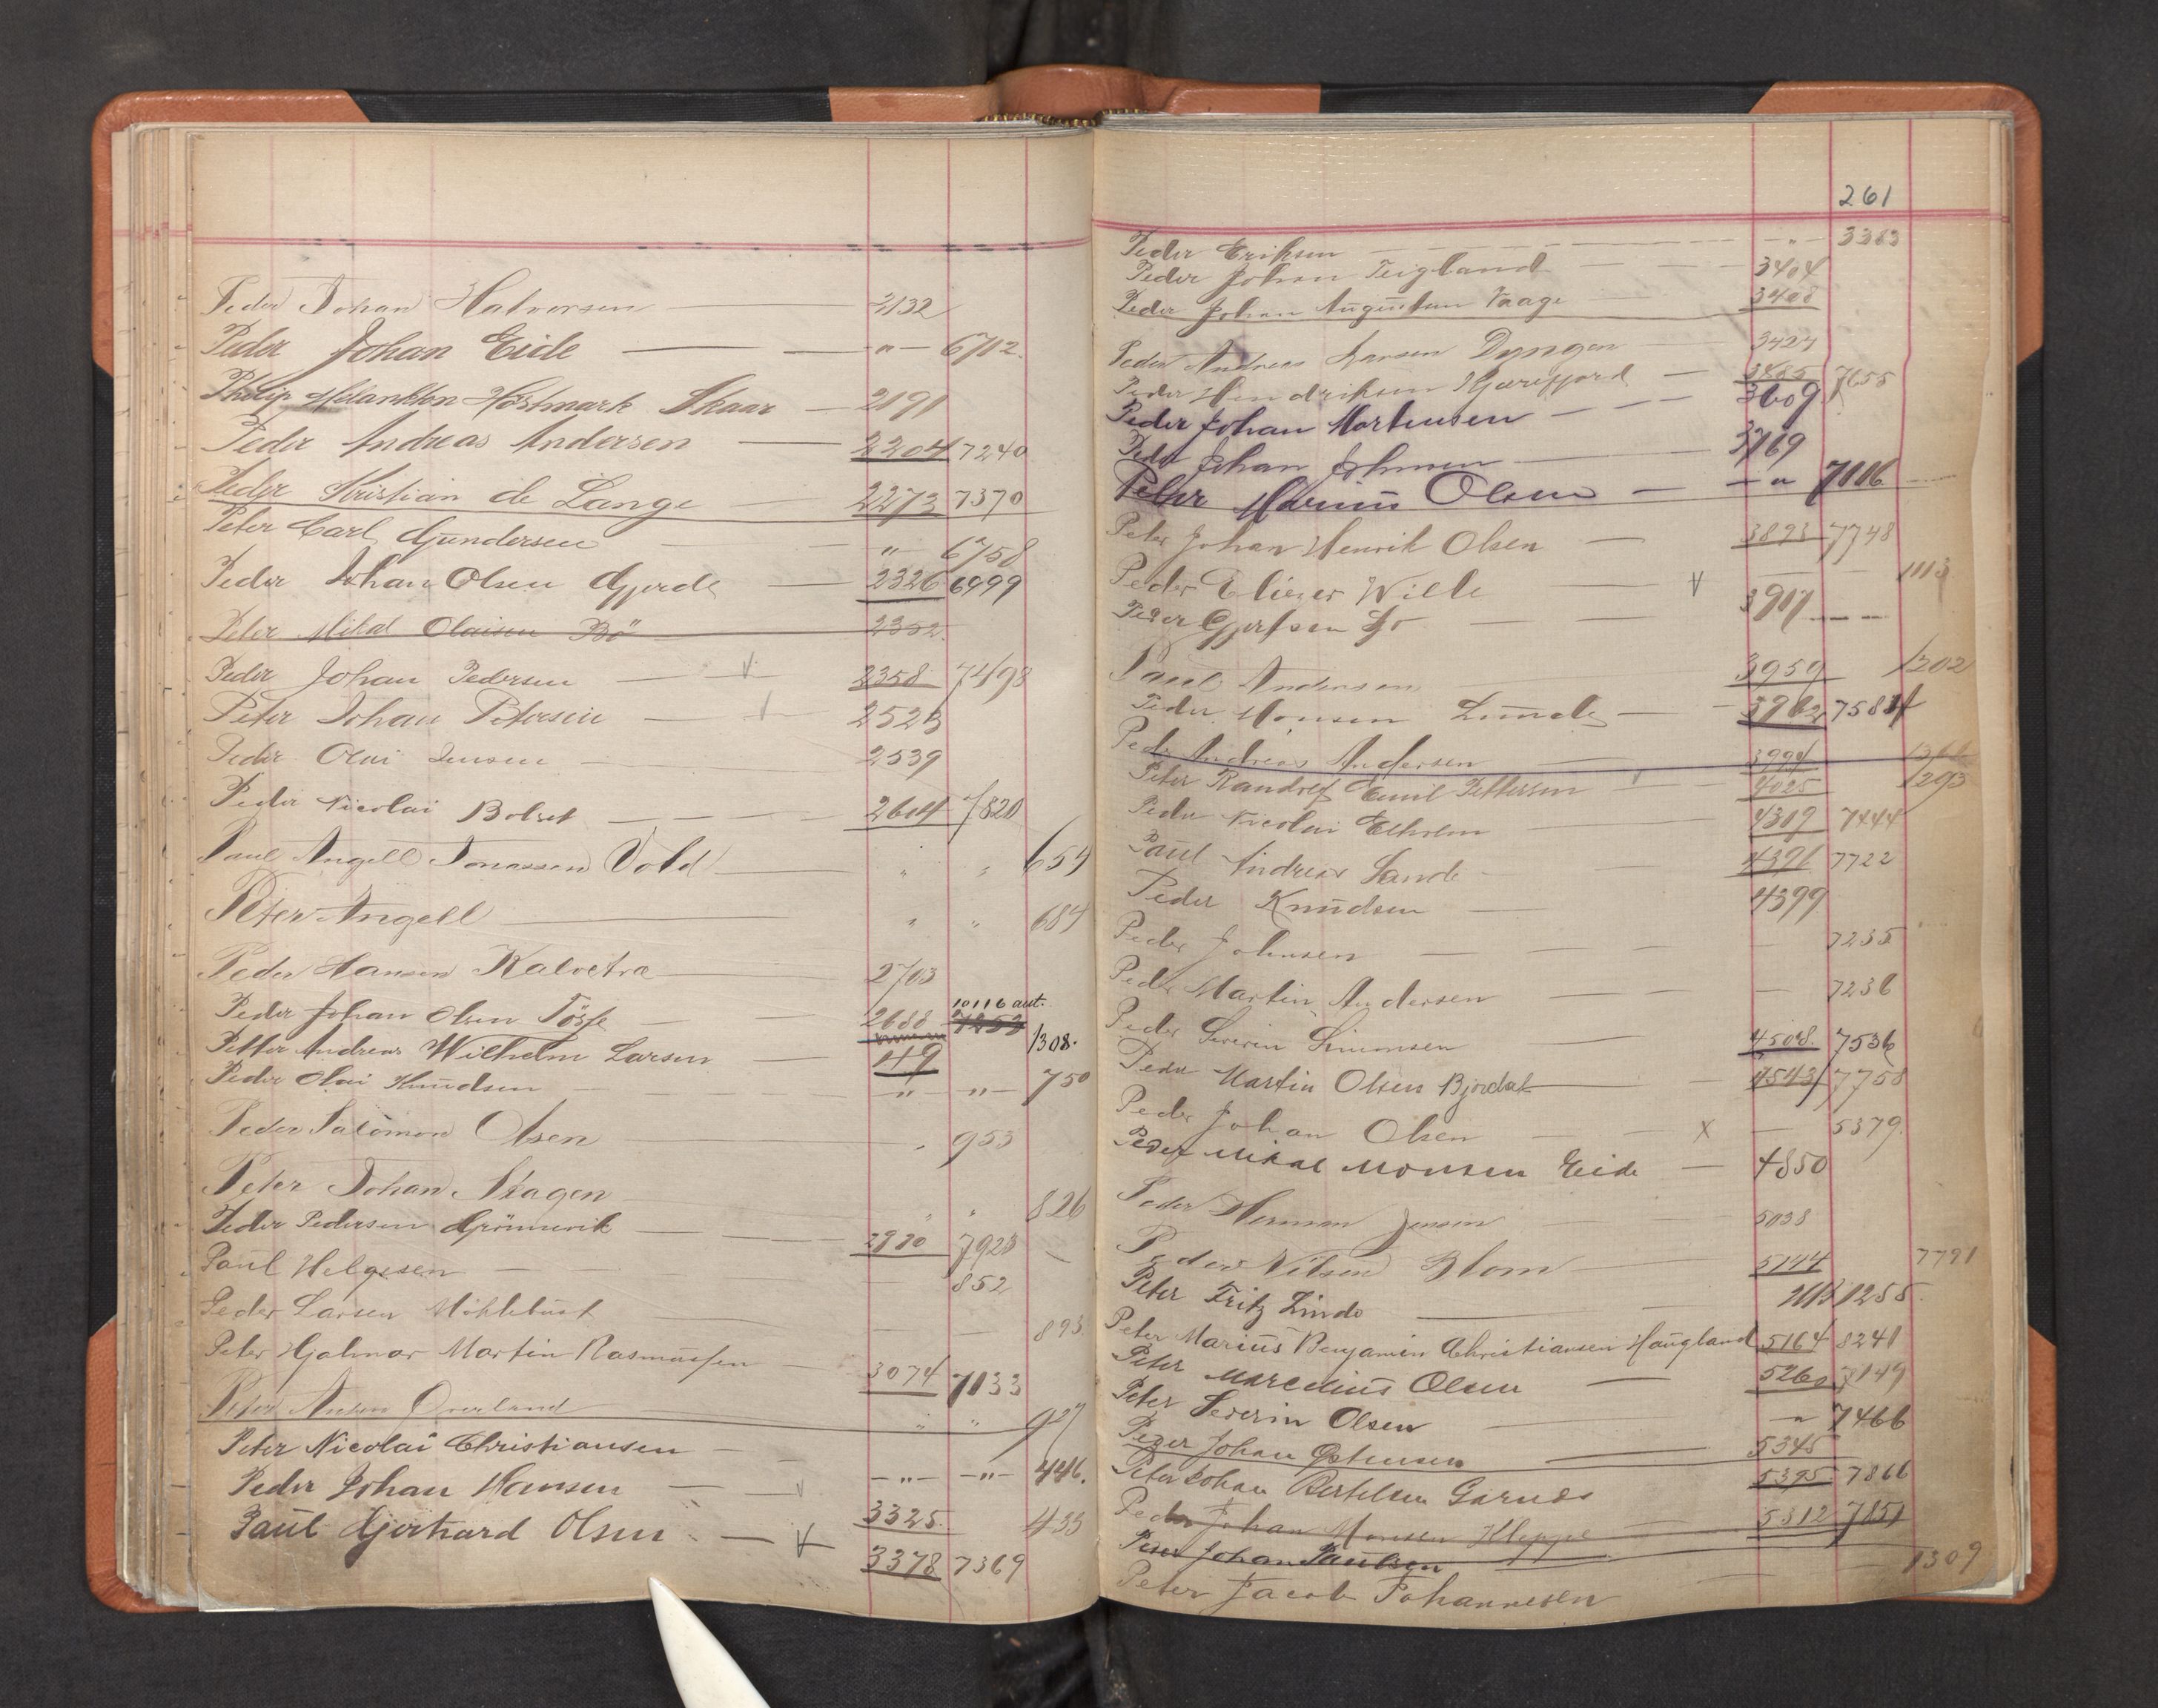 Peder Johan Halvorsen 2132
Peder Johan Eide — — " — 6712.
Philip Melankton Hostmark Skaar — 2191
Peder Andreas Andersen — 2204 7240
Peder Kristian de Lange — 2273 7370
Peter Carl Gundersen — " 6758
Peder Johan Olsen Gjerde — 2326 6999
Peter Mikal Olaisen Bö 2352
Peder Johan Pedersen — V 2358 7498
Peter Johan Petersen — 2523
Peder Olai Jensen 2539
Peder Nicolai Bolset — — — 2604 7820
Paul Angell Jonassen Vold — " " 654
Peter Angell — " " 684
Peder Hansen Kalvetræ 2703
10116 aut.
Peder Johan Olsen 2688 7253
Petter Andreas Wilhelm Larsen — 119 1308.
Peder Olai Knudsen — " — " — 750
Peder Salomon Olsen " 953
Peter Johan Skagen " " 826
Peder Pedersen Grönnevik — 2980 7923
Paul Helgesen — — 852
Peder Larsen — — 893
Peter Hjalmar Martin Rasmussen — 3074 7033
Peter Overland " " 927
Peter Nicolai Christiansen — — " — — " — 446.
Peder Johan Hansen — V 3325. 433
Paul Gjerhard Olsen — V 3378 7369
261
Peder Eriksen — " — 3363
Peder Johan Teigland — — 3404
Peder Johan Augustsen Vaage 3408
Peder Andreas Larsen Dyngen — 3427
Peder Hendriksen — 3465 7655
Peder Johan Mortensen — — — 3609
Peder Johan Johnsen — 3769
Peter Marius Olsen — — " 7116
Peter Johan Henrik Olsen — 3893 7748
Peder Eliezer Wille V 1113
Peder — — 3917 — —
Paul Andersen 3959 1202
Peder Monsen Lunde — 3962 7584
Peder Andreas Andersen 3994
Peter Randolf Emil Pettersen V 4025 1293
Peder Nicolai Elholm 4309 7444
Paul Andreas Sande 4391 7722
Peder Knudsen — 4399
Peder Johnsen — — — — 7235
Peder Martin Andersen — — — 7236
Peder Severin Simonsen — 4508. 7536
Peder Martin Olsen Bjordal 4543 7758
Peder Johan Olsen — X — 5379.
Peder Mikal Monsen Eide — 4850
Peder Herman Jensen 5038
Peder Nilsen Blom 5144 7791
Peter Fritz Lindo — 1255.
Peter Marius Benjamin Christiansen Haugland 5164 8241
Peter Marcelius Olsen — 5260 7149
Peter Severin Olsen — " 7466
Peder Johan Østensen — 5345
Peter Johan Bertelsen Garnes 5395 7866
Peder Johan Monsen Kleppe 5812 7851
Peder Johan Paulsen
Peter Jacob Johannesen 1309